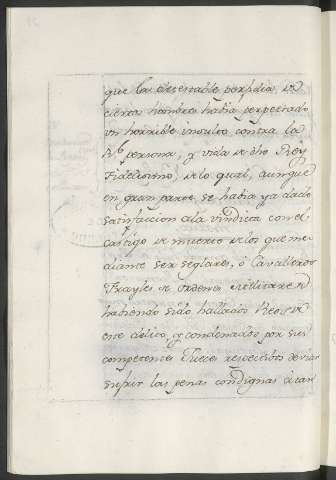 que la detestable perfidia de
ciertos hombres habia perpetrado
un horrible insulto contra la
Rl. persona, y vida de dho Rey
Fidelisimo, de lo qual, aunque
en gran parte se habia ya dado
satisfaccion a la vindicta con el
castigo de muerte de los que me-
diante ser seglares, ó Cavalleros
Frayles de Ordenes Militares
habiendo sido hallados Reos de
este delito, y condenados por sus
competentes Jueces respectivos devian
sufrir las penas condignas á tan